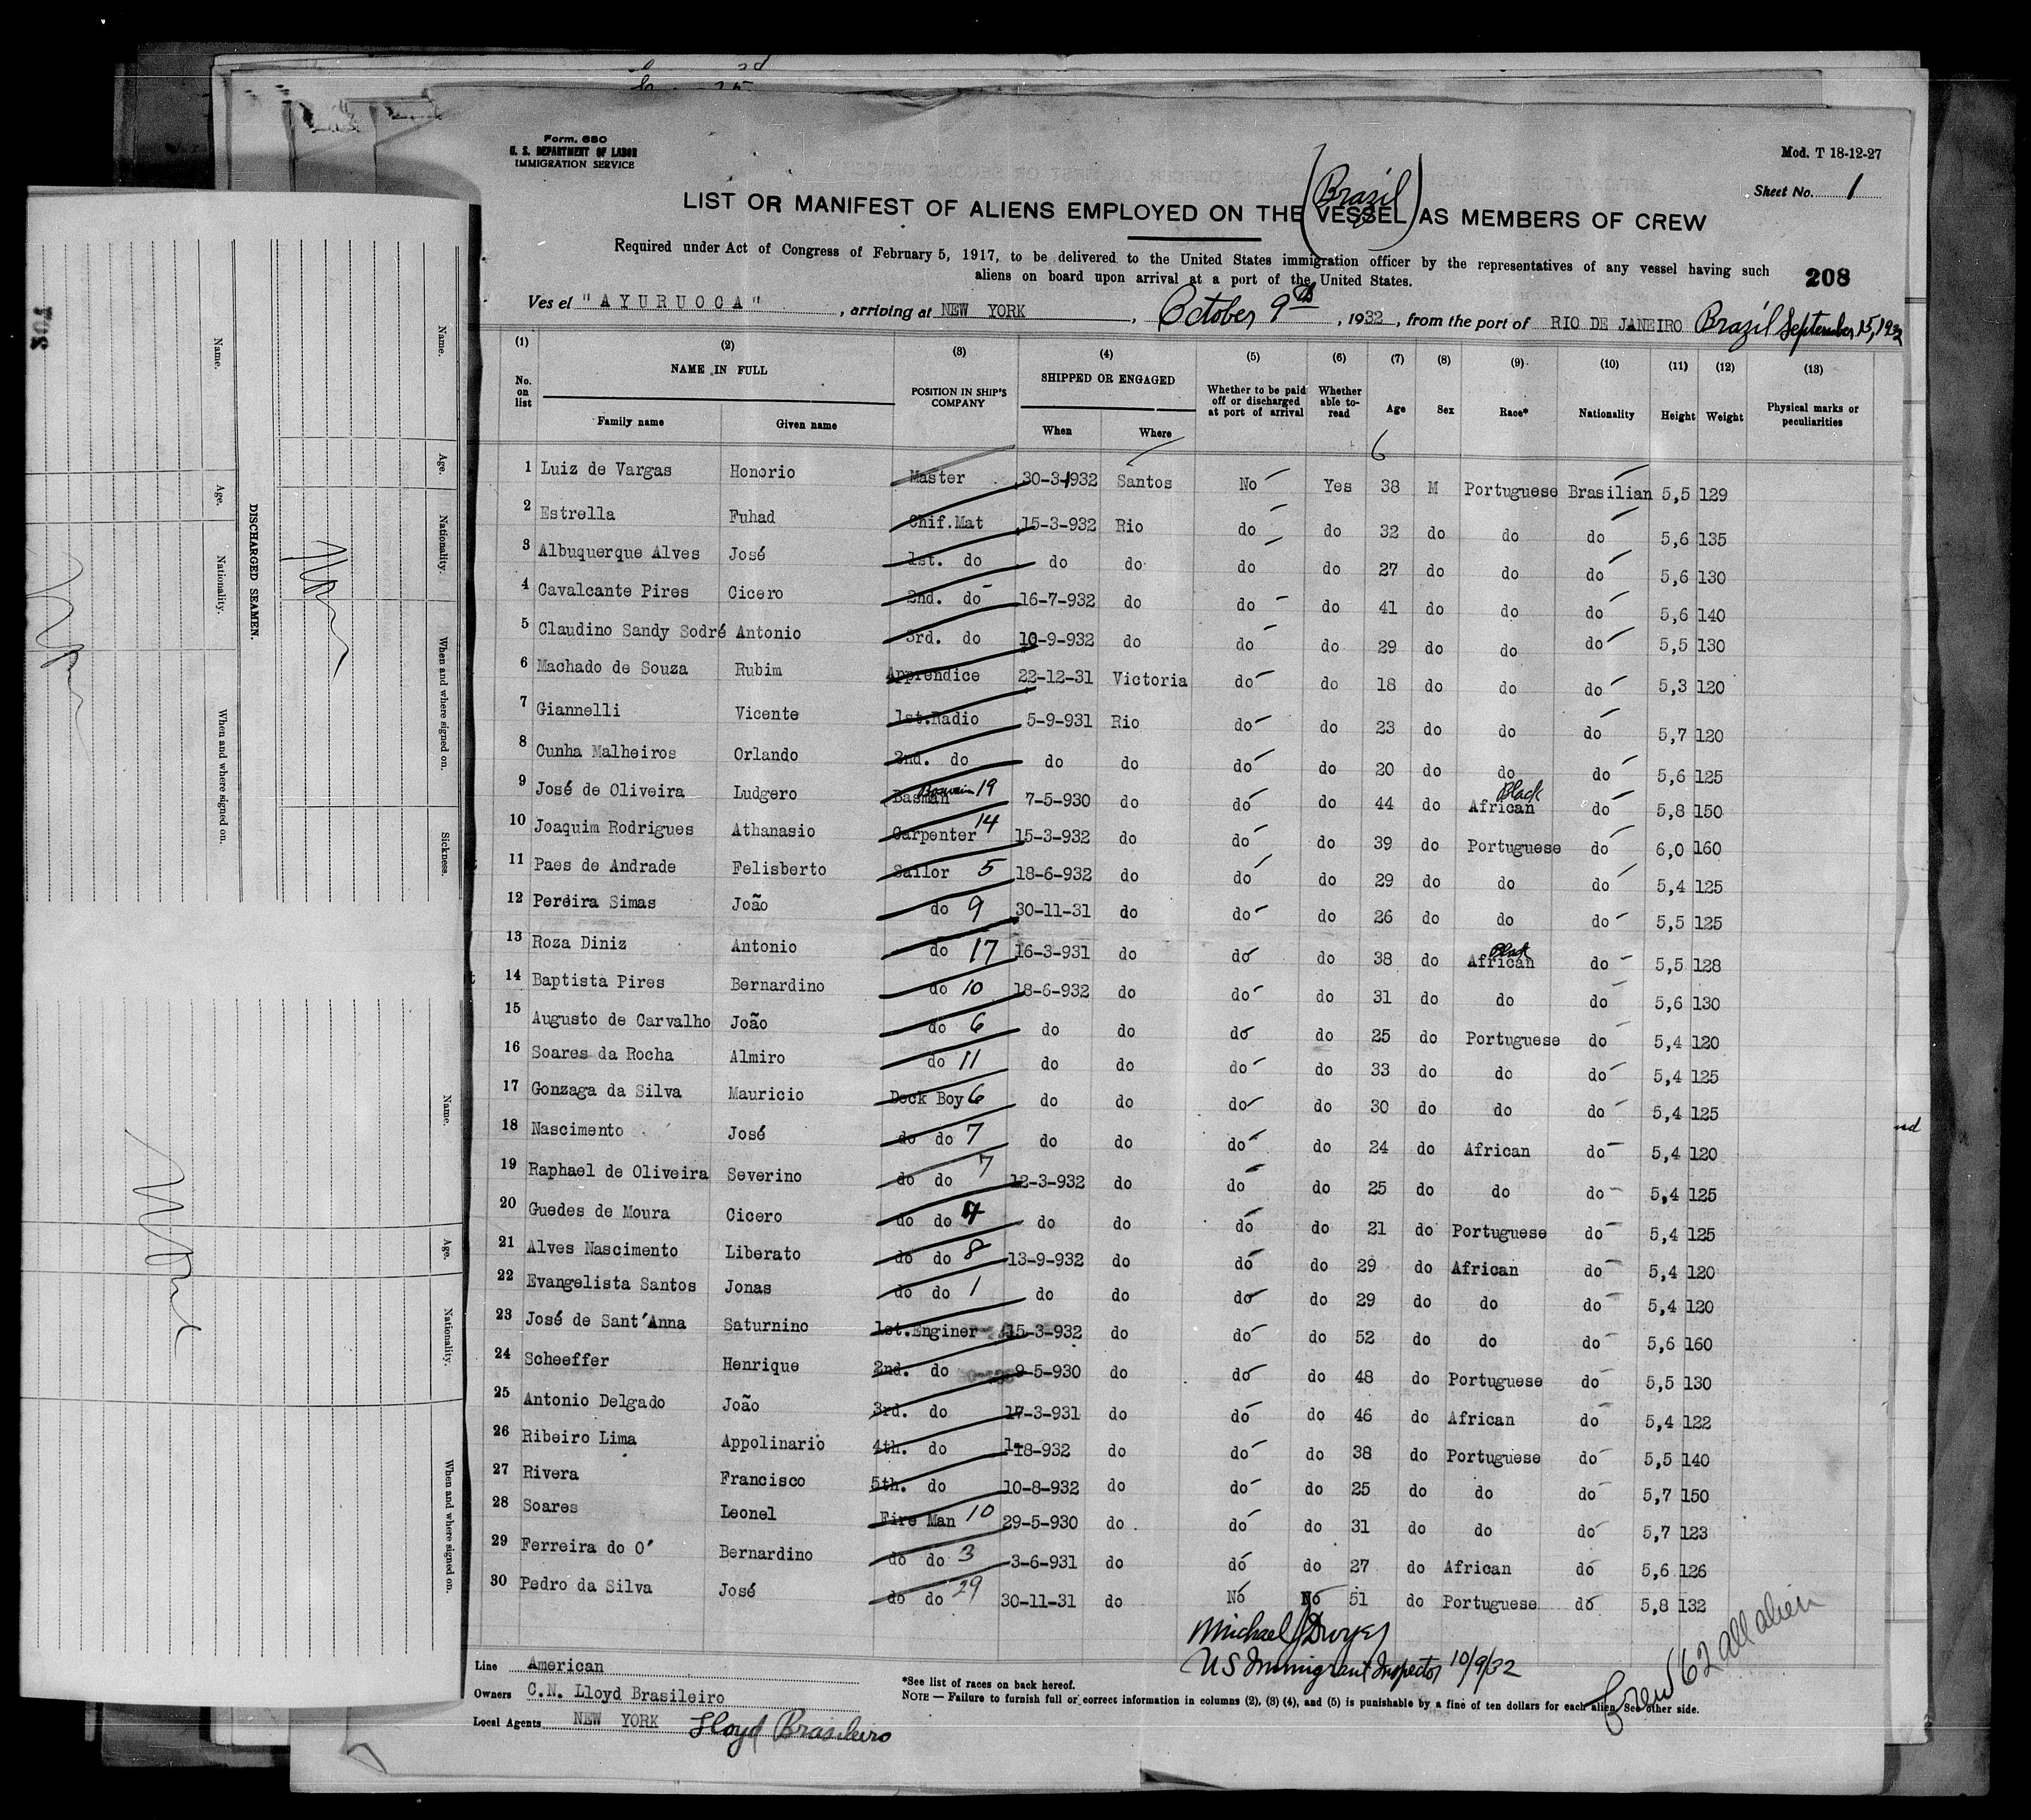 Form. 680
U. S. DEPARTMENT OF LABOR
IMMIGRATION SERVICE
Mod. T 18-12-27
Sheet No. 1
(Brazil)
LIST OR MANIFEST OF ALIENS EMPLOYED ON THE VESSEL AS MEMBERS OF CREW
Required under Act of Congress of February 5, 1917, to be delivered to the United States immigration officer by the representatives of any vessel having such
aliens on board upon arrival at a port of the United States.
208
Ves el "AYURUOCA", arriving at NEW YORK, October 9th, 1932, from the port of RIO DE JANEIRO Brazil September 15, 1932
(1) (2) (3) (4) (5) (6) (7) (8) (9) (10) (11) (12) (13)
No. on list NAME IN FULL Family name Given name POSITION IN SHIP'S COMPANY SHIPPED OR ENGAGED When Where Whether to be paid off or discharged at port of arrival Whether able to-read Age Sex Race* Nationality Height Weight Physical marks or peculiarities
6
1 Luiz de Vargas Honorio Master 30-3-1932 Santos No Yes 38 M Portuguese Brasilian 5,5 129
2 Estrella Fuhad Chif.Mat 15-3-932 Rio do do 32 do do do 5,6 135
3 Albuquerque Alves José 1st. do do do do do 27 do do do 5,6 130
4 Cavalcante Pires Cicero 2nd. do 16-7-932 do do do 41 do do do 5,6 140
5 Claudino Sandy Sodré Antonio 3rd. do 10-9-932 do do do 29 do do do 5,5 130
6 Machado de Souza Rubim Apprendice 22-12-31 Victoria do do 18 do do do 5,3 120
7 Giannelli Vicente 1st.Radio 5-9-931 Rio do do 23 do do do 5,7 120
8 Cunha Malheiros Orlando 2nd. do do do do do 20 do do do 5,6 125
9 José de Oliveira Ludgero Basman 19 7-5-930 do do do 44 do African Black do 5,8 150
10 Joaquim Rodrigues Athanasio Carpenter 14 15-3-932 do do do 39 do Portuguese do 6,0 160
11 Paes de Andrade Felisberto Sailor 5 18-6-932 do do do 29 do do do 5,4 125
12 Pereira Simas João do 9 30-11-31 do do do 26 do do do 5,5 125
13 Roza Diniz Antonio do 17 16-3-931 do do do 38 do African Black do 5,5 128
14 Baptista Pires Bernardino do 10 18-6-932 do do do 31 do do do 5,6 130
15 Augusto de Carvalho João do 6 do do do do 25 do Portuguese do 5,4 120
16 Soares da Rocha Almiro do 11 do do do do 33 do do do 5,4 125
17 Gonzaga da Silva Mauricio Deck Boy 6 do do do do 30 do do do 5,4 125
18 Nascimento José do do 7 do do do do 24 do African do 5,4 120
19 Raphael de Oliveira Severino do do 7 12-3-932 do do do 25 do do do 5,4 125
20 Guedes de Moura Cicero do do do do do do 21 do Portuguese do 5,4 125
21 Alves Nascimento Liberato do do 8 13-9-932 do do do 29 do African do 5,4 120
22 Evangelista Santos Jonas do do 1 do do do do 29 do do do 5,4 120
23 José de Sant'Anna Saturnino 1st.Enginer 15-3-932 do do do 52 do do do 5,6 160
24 Scheeffer Henrique 2nd. do 9-5-930 do do do 48 do Portuguese do 5,5 130
25 Antonio Delgado João 3rd. do 17-3-931 do do do 46 do African do 5,4 122
26 Ribeiro Lima Appolinario 4th. do 1-18-932 do do do 38 do Portuguese do 5,5 140
27 Rivera Francisco 5th. do 10-8-932 do do do 25 do do do 5,7 150
28 Soares Leonel Fire Man 10 29-5-930 do do do 31 do do do 5,7 123
29 Ferreira do O' Bernardino do do 3 3-6-931 do do do 27 do African do 5,6 126
30 Pedro da Silva José do do 29 30-11-31 do No No 51 do Portuguese do 5,8 132
Michael J Dwyer
US Immigrant Inspector 10/9/32
Crew 62 all alien
Line American
Owners C.N. Lloyd Brasileiro
Local Agents NEW YORK Lloyd Brasileiro
*See list of races on back hereof.
NOTE — Failure to furnish full or correct information in columns (2), (3) (4), and (5) is punishable by a fine of ten dollars for each alien. See other side.
Name. Age. Nationality. When and where signed on. Sickness.
DISCHARGED SEAMEN.
Name. Age. Nationality. When and where signed on.
Name. Age. Nationality. When and where signed on.
None
None